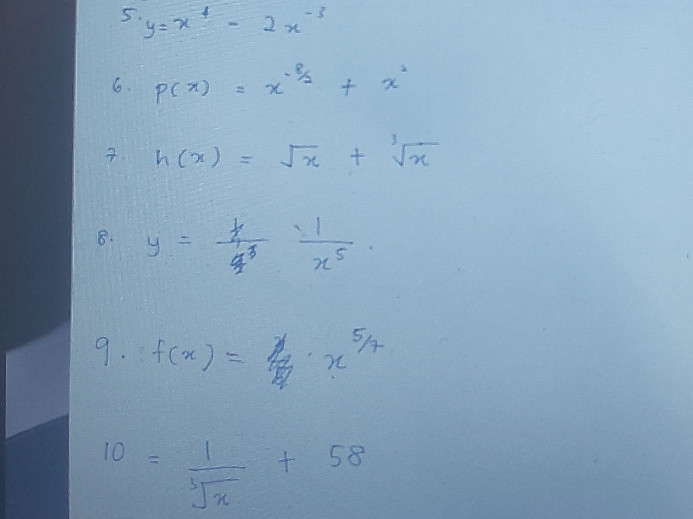 5. y = x⁴ - 2x⁻³
6. p(x) = x + x²
7. h(x) = √x + ∛x
8. y = 1/x⁵.
9. f(x) = x^5/7
10 = 1/∛x + 58